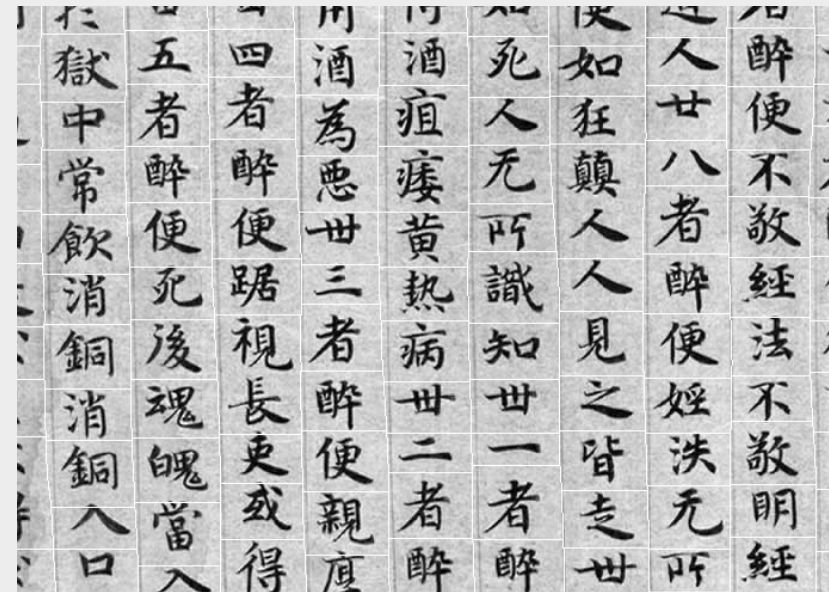 醉便不敬經法不敬明經
人廿八者醉便婬泆无所
便如狂顛人人見之皆走丗
死人无所識知丗一者醉
酒疽痿黄热病丗二者醉
用酒為惡丗三者醉便親
四者醉便踞視長吏或得
五者醉便死後魂魄當入
獄中常飲消銅消銅入口